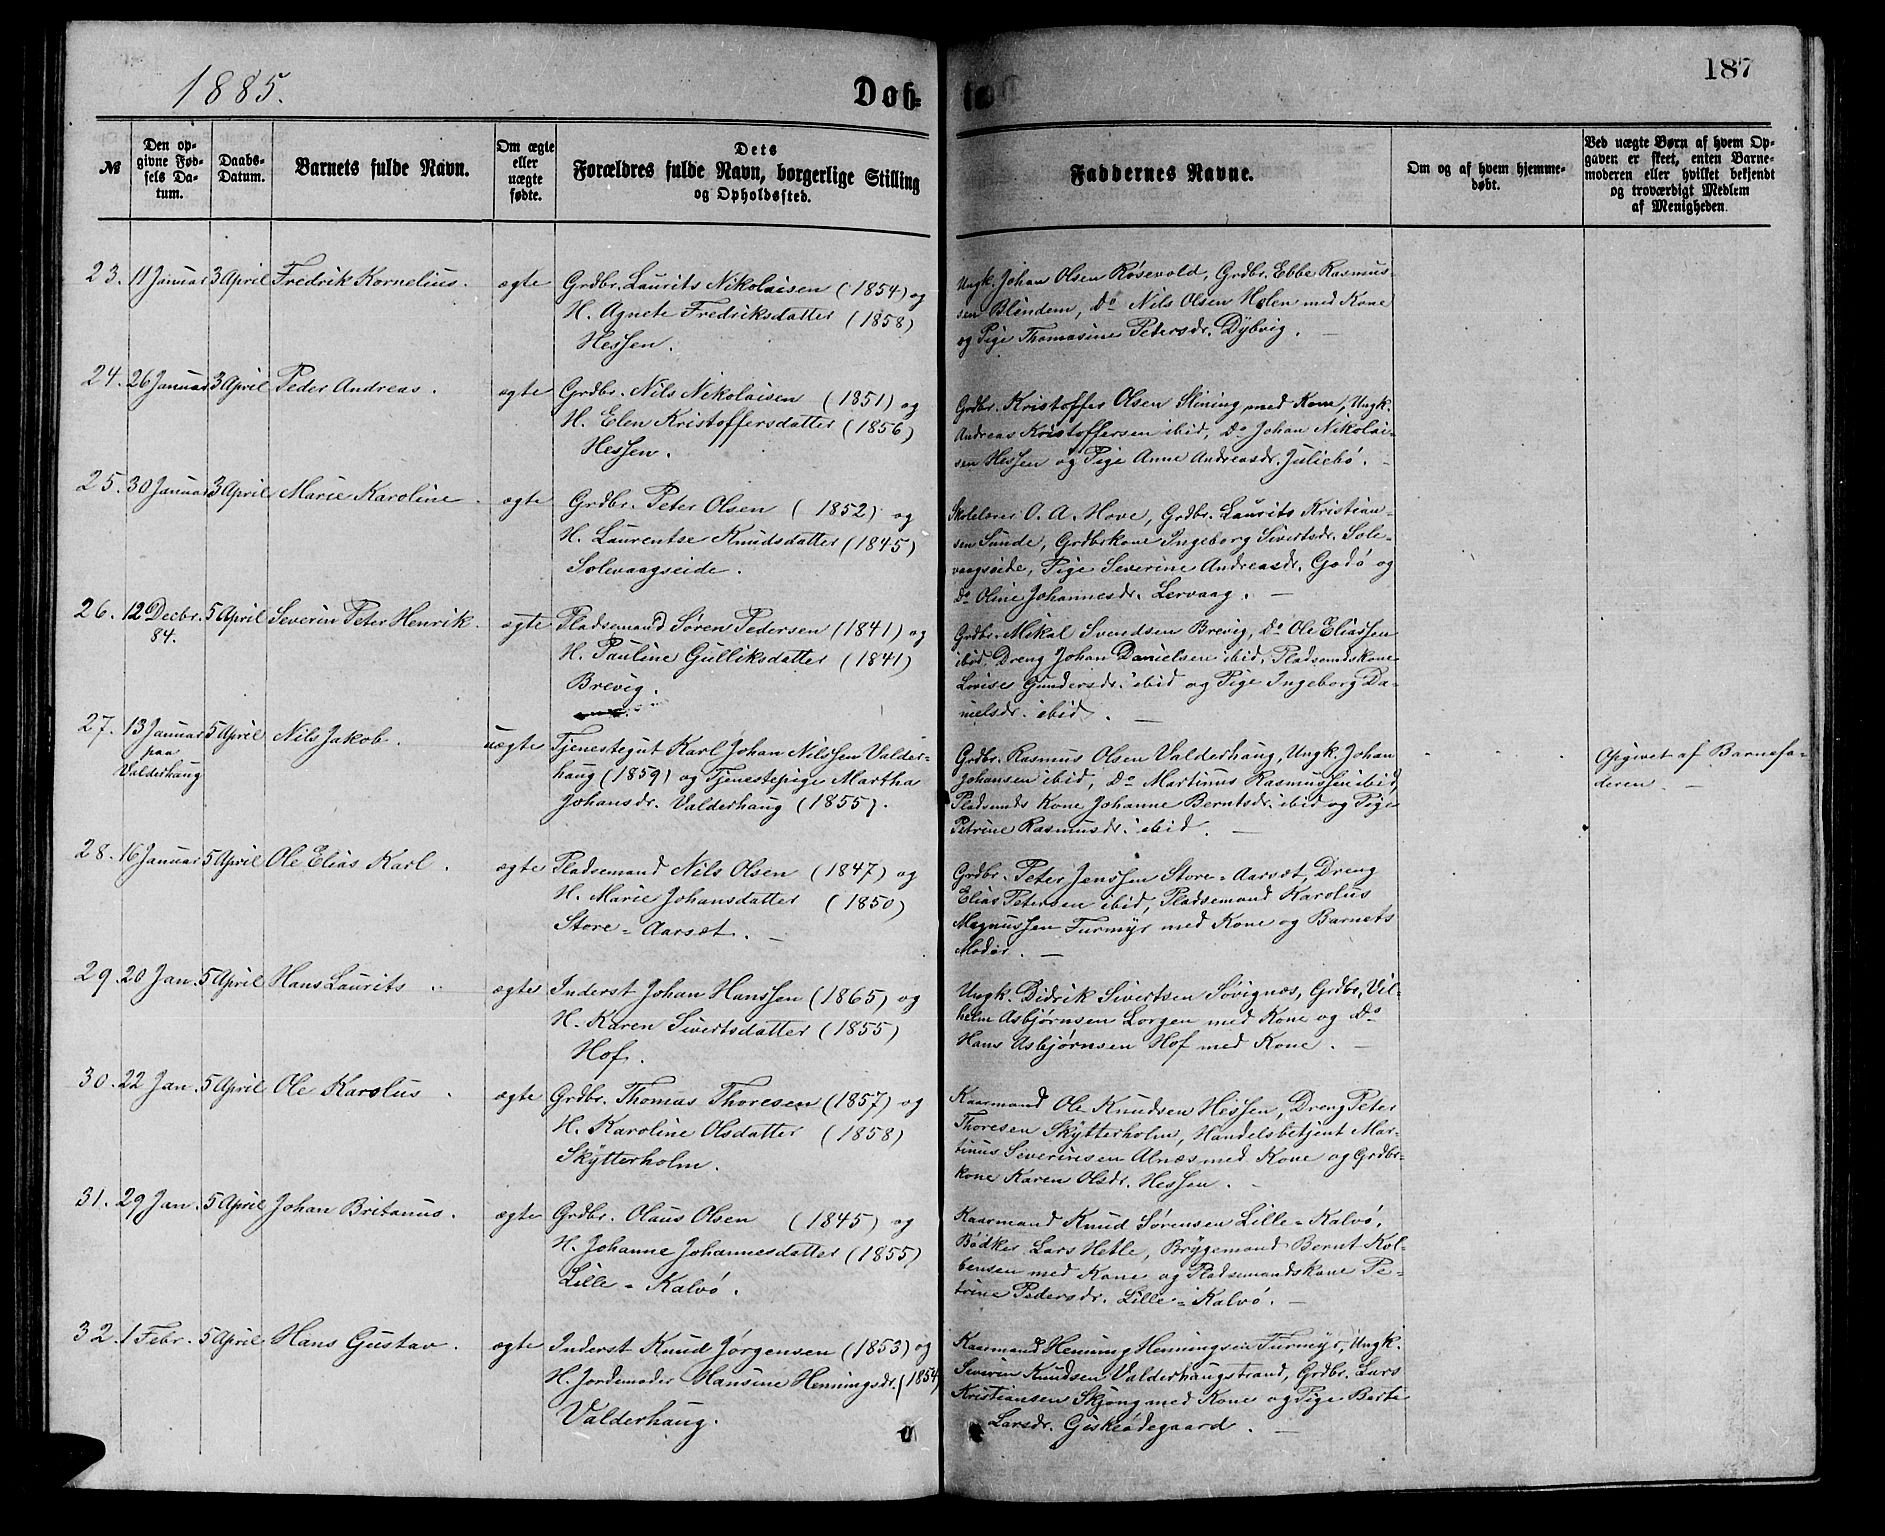 1885.
Døb-
187
№
Den op-
givne Fød-
sels Da-
tum.
Daabs-
Datum.
Barnets fulde Navn.
Om ægte
eller
uægte
fødte.
Dets
Forældres fulde Navn, borgerlige Stilling
og Opholdssted.
Faddernes Navne.
Om og af hvem hjemme-
døbt.
Ved uægte Børn af hvem Op-
gaven er skeet, enten Barne-
moderen eller hvilket bekjendt
og troværdigt Medlem
af Menigheden.
23. 11 Januar 3 April Fredrik Kornelius. ægte Grdbr. Laurits Nikolaisen (1854) og
H. Agnete Fredriksdatter (1858)
Hessen.
Ungk. Johan Olsen Røsevold, Grdbr. Ebbe Rasmus-
sen Blindem, Do Nils Olsen Holen med Kone
og Pige Thomasine Petersdr. Dybvig. —
24. 26 Januar 3 April Peder Andreas. ægte Grdbr. Nils Nikolaisen (1851) og
H. Elen Kristoffersdatter (1856)
Hessen.
Grdbr. Kristoffer Olsen Slining med Kone, Ungk.
Andreas Kristoffersen ibid, Do Johan Nikolai-
sen Hessen og Pige Anne Andreasdr. Juliebø. —
25. 30 Januar 3 April Marie Karoline. ægte Grdbr. Peter Olsen (1852) og
H. Laurentse Knudsdatter (1845)
Solevaagseide.
Skolelærer O. A. Hove, Grdbr. Laurits Kristian-
sen Sunde, Grdbrkone Ingeborg Sivertsdr. Sole-
vaagseide, Pige Severine Andreasdr. Godø og
Do Oline Johannesdr. Lervaag. —
26. 12 Decbr. 5 April Severin Peter Henrik. ægte Pladsemand Søren Pedersen (1841) og
84.
H. Pauline Gulliksdatter (1841)
Brevig.
Grdbr. Mikal Svendsen Brevig, Do Ole Eliassen
ibid. Dreng Johan Danielsen ibid, Pladsmdskone
Lovise Gundersdr. ibid og Pige Ingeborg Da-
nielsdr. ibid. —
27. 13 Januar 5 April Nils Jakob. uægte Tjenestegut Karl Johan Nilssen Valder-
paa
Valderhaug
haug (1859) og Tjenestepige Martha
Johansdr. Valderhaug (1855).
Grdbr. Rasmus Olsen Valderhaug, Ungk. Johan
Johansen ibid, Do Martinus Rasmussen ibid,
Pladsmds Kone Johanne Berntsdr. ibid og Pige
Petrine Rasmusdr. ibid. —
Opgivet af Barnefa-
deren. —
28. 16 Januar 5 April Ole Elias Karl. ægte Pladsemand Nils Olsen (1847) og
H. Marie Johansdatter (1850)
Store-Aarsæt. —
Grdbr. Peter Jenssen Store-Aarsæt, Dreng
Elias Petersen ibid, Pladsemand Karolus
Magnussen Furmyr med Kone og Barnets
Moder. —
29. 20 Jan. 5 April Hans Laurits ægte Inderst Johan Hanssen (1865) og
H. Karen Sivertsdatter (1855)
Hof.
Ungk. Didrik Sivertsen Søvignæs, Grdbr. Vil-
helm Asbjørnsen Lorgen med Kone og Do
Hans Asbjørnsen Hof med Kone. —
30. 22 Jan. 5 April Ole Karolus. ægte Grdbr. Thomas Thoresen (1857) og
H. Karoline Olsdatter (1858)
Skytterholm.
Kaarmand Ole Knudsen Hessen, Dreng Peter
Thoresen Skytterholm, Handelsbetjent Mar-
tinus Severinsen Alnæs med Kone og Grdbr-
kone Karen Olsdr. Hessen. —
31. 29 Jan. 5 April Johan Britanus. ægte Grdbr. Olaus Olsen (1845) og
H. Johanne Johannesdatter (1855)
Lille-Kalvø.
Kaarmand Knud Sørensen Lille-Kalvø,
Bødker Lars Hetle, Bryggemand Bernt Kol-
bensen med Kone og Pladsemandskone Pe-
trine Pedersdr. Lille-Kalvø. —
32. 1 Febr. 5 April Hans Gustav. ægte Inderst Knud Jørgensen (1853) og
H. Jordemoder Hansine Henningsdr. (1854)
Valderhaug.
Kaarmand Henning Henningsen Furmyr, Ungk.
Severin Knudsen Valderhaugstrand, Grdbr. Lars
Kristiansen Skjong med Kone og Pige Berte
Larsdr. Giskeødegaard. —